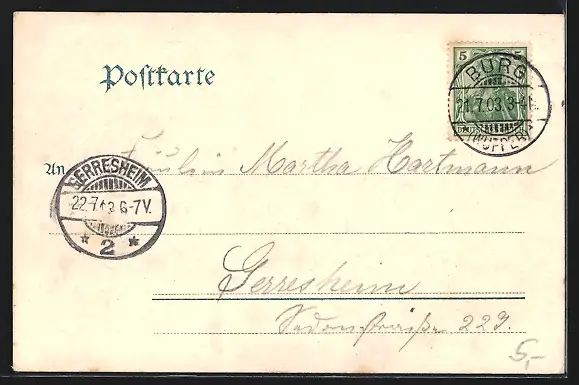 Postkarte
5
BURG
21.7.03.3-4N.
(WUPPER)
An Fräulein Martha Hartmann
GERRESHEIM
22.7.03 6-7V.
* 2 *
Gerresheim
Sedanstraße 229.
5,-